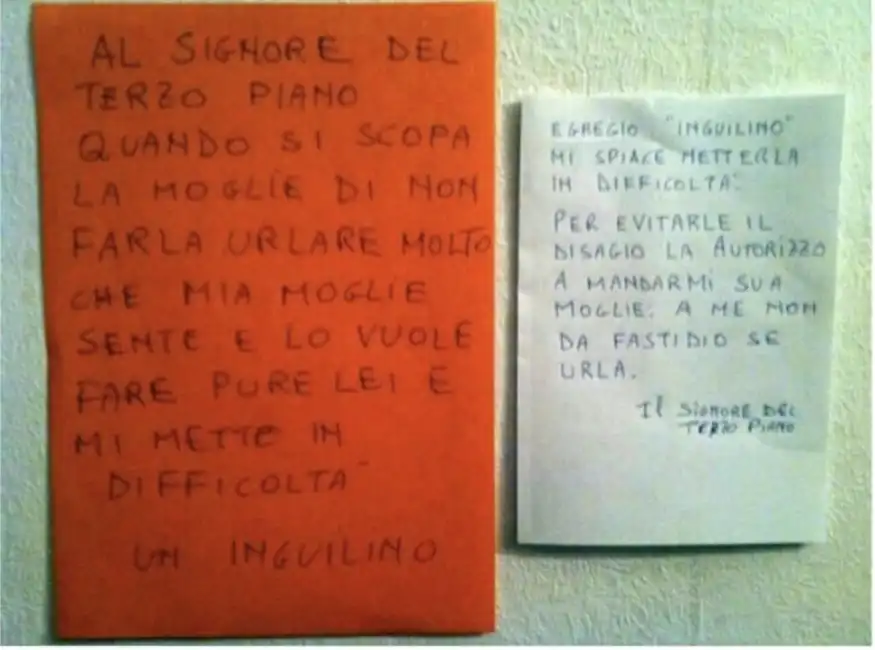 AL SIGNORE DEL
TERZO PIANO
QUANDO SI SCOPA
LA MOGLIE DI NON
FARLA URLARE MOLTO
CHE MIA MOGLIE
SENTE E LO VUOLE
FARE PURE LEI E
MI METTE IN
DIFFICOLTA'
UN INGUILINO
EGREGIO "INGUILINO"
MI SPIACE METTERLA
IN DIFFICOLTA'.
PER EVITARLE IL
DISAGIO LA AUTORIZZO
A MANDARMI SUA
MOGLIE. A ME NON
DA FASTIDIO SE
URLA.
Il SIGNORE DEL
TERZO PIANO